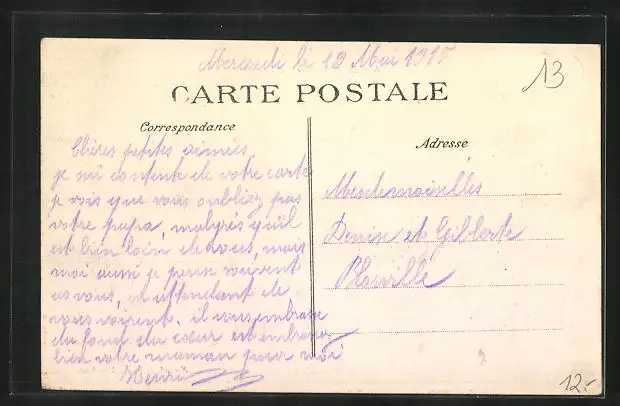 Mercredi le 12 Mai 1915
13
CARTE POSTALE
Correspondance
Adresse
Chères petites aimées,
je sui contente de votre carte
je vois que vous oubliez pas
votre papa, malgrés qu'il
est bien loin de vous, mais
moi aussi je pense souvent
as vous, en attendant de
vous voirent. il vous embrasse
du fond du cœur est embrasser
bien votre maman pour moi
Henri
Mesdemoiselles
Denise et Gilberte
Blainville
12.-